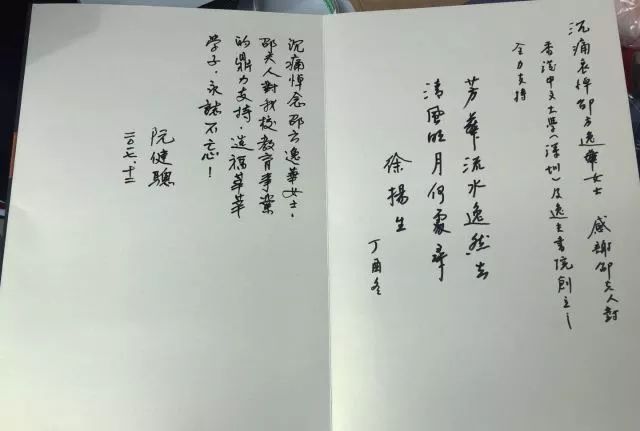 沉痛哀悼邵方逸華女士 感謝邵夫人對
香港中文大學(深圳)及逸夫書院創立之
全力支持
芳華流水逸然去
清風明月何處尋
徐揚生
丁酉冬
沉痛悼念邵方逸華女士,
邵夫人對我校教育事業
的鼎力支持,造福莘莘
學子,永誌不忘!
阮健驄
二〇一七、十二